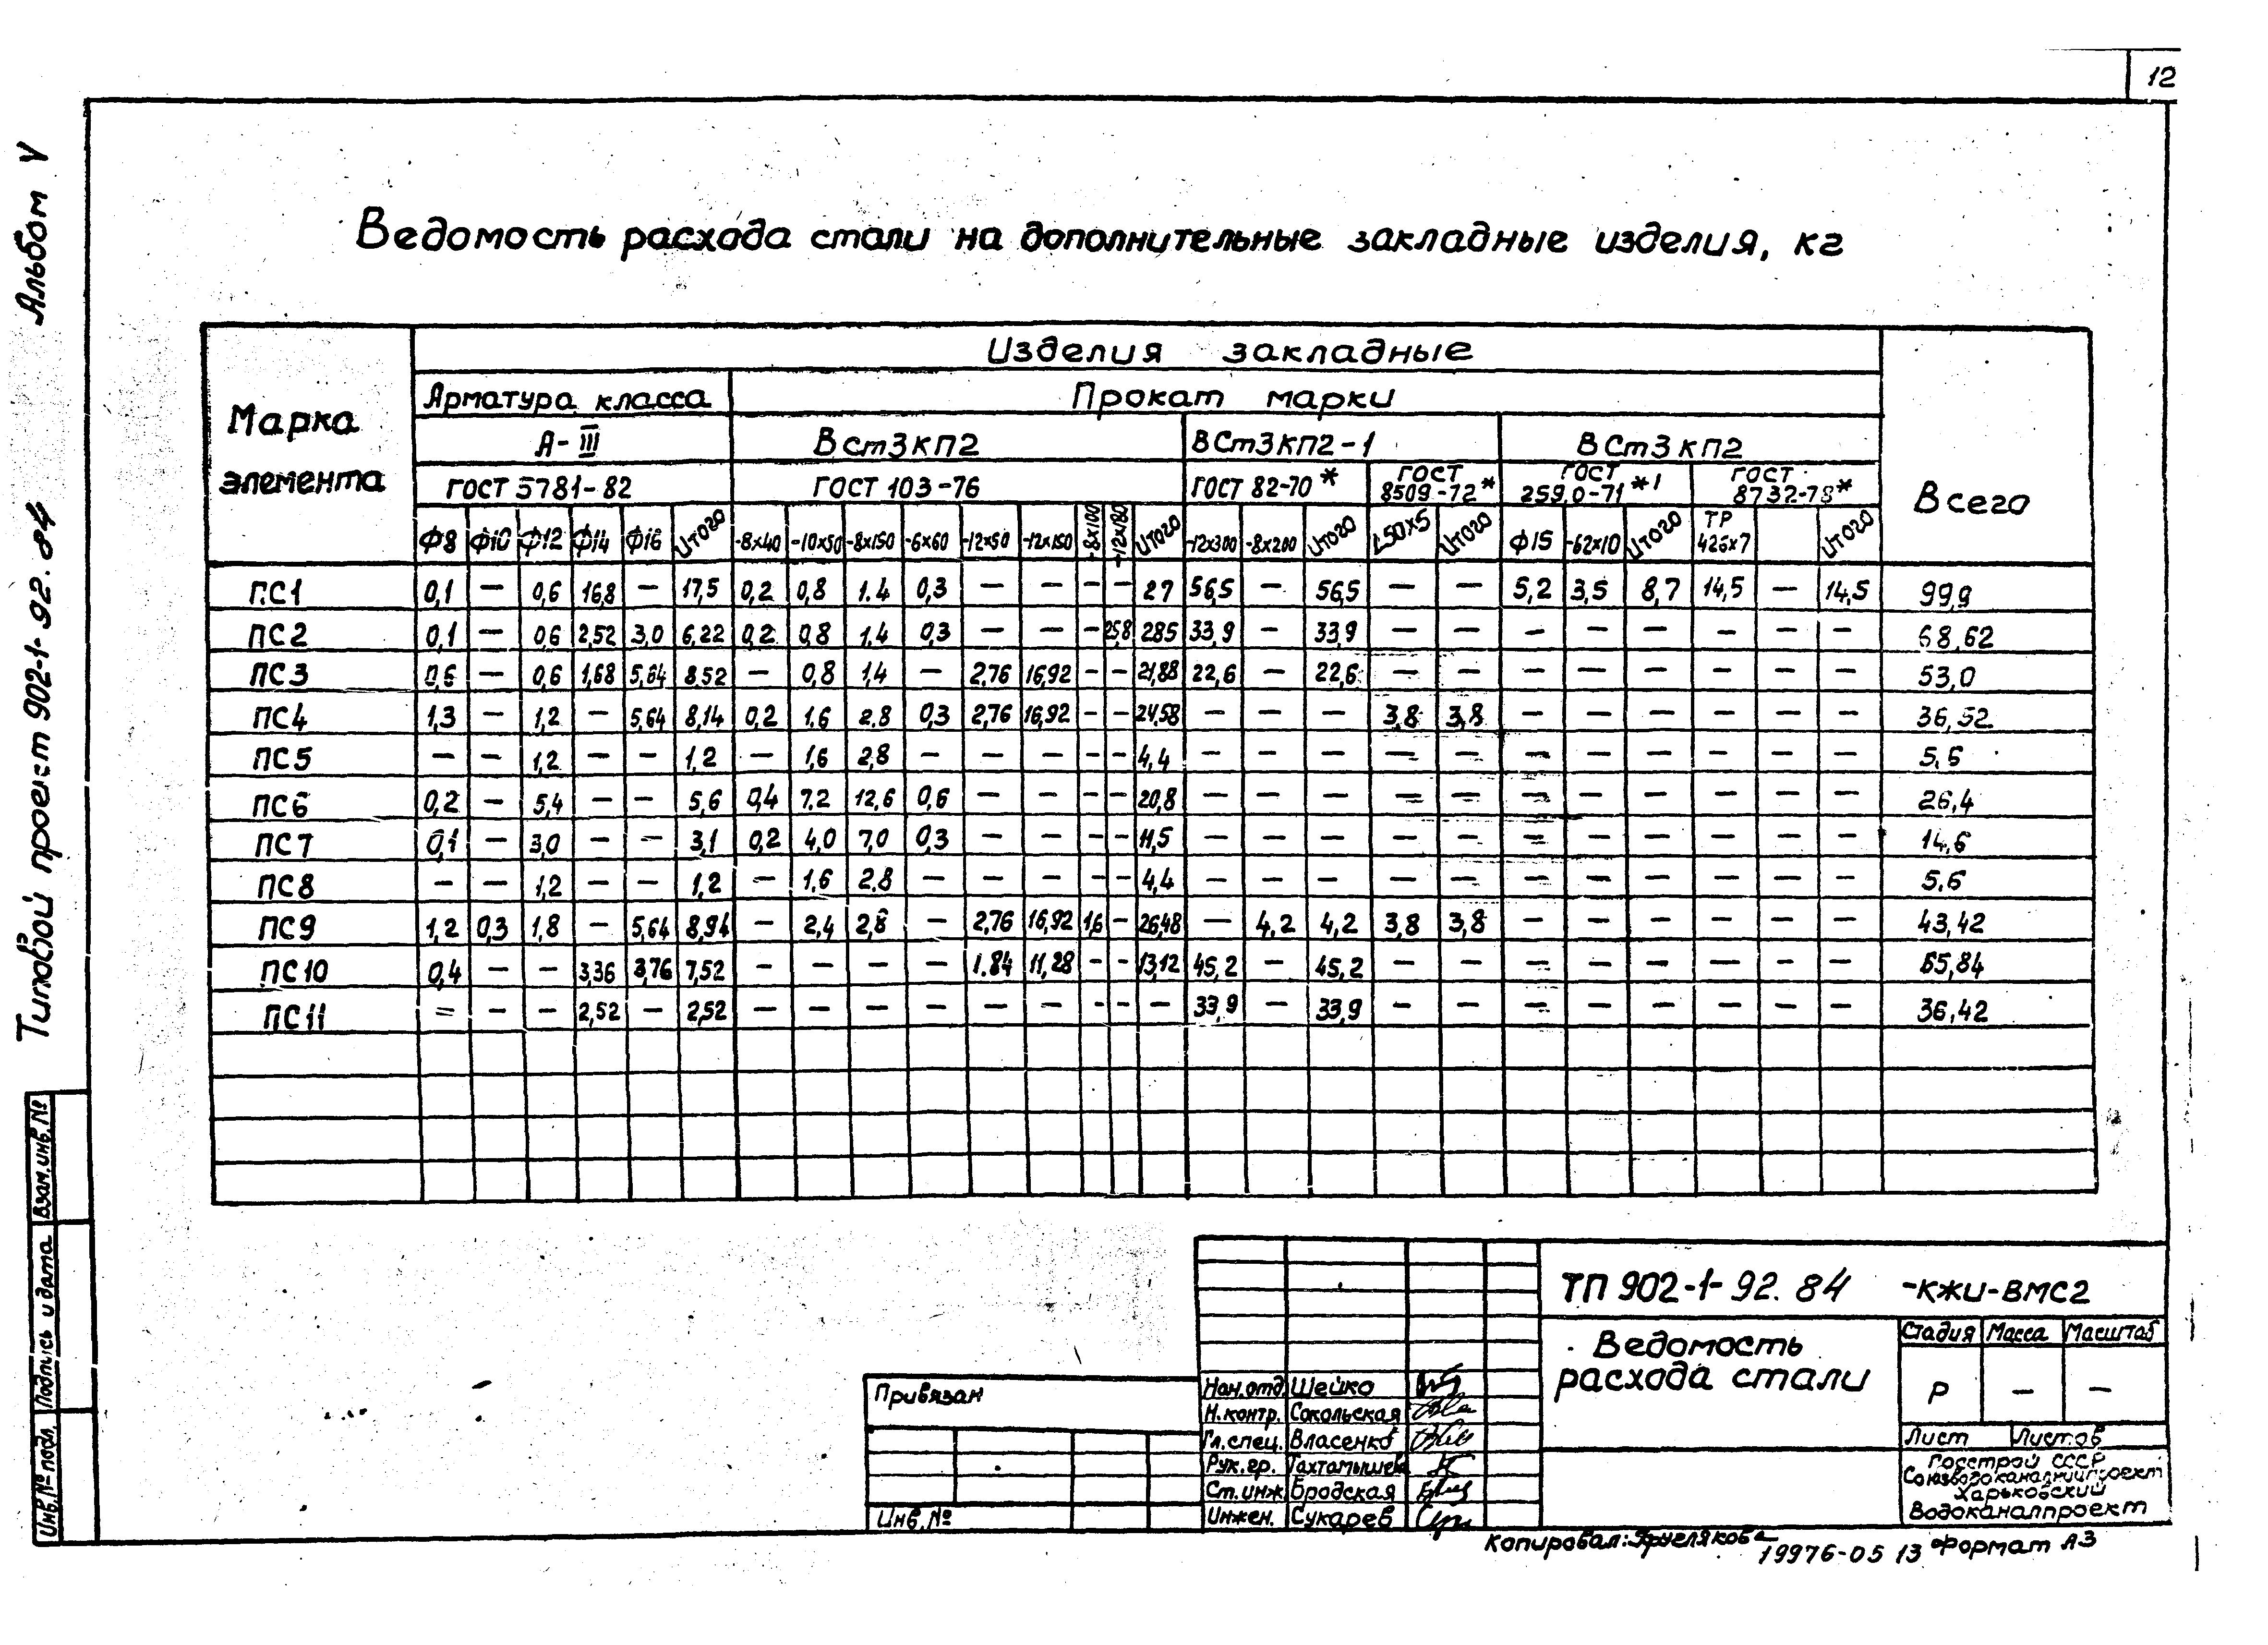 12
Альбом V
Типовой проект 902-1-92.84
Ведомость расхода стали на дополнительные закладные изделия, кг
Марка элемента
Изделия закладные
Всего
Арматура класса
Прокат марки
А-III
ВСт3КП2
ВСт3КП2-1
ВСт3КП2
ГОСТ 5781-82
ГОСТ 103-76
ГОСТ 82-70*
ГОСТ 8509-72*
ГОСТ 2590-71*1
ГОСТ 8732-78*
Ф8 Ф10 Ф12 Ф14 Ф16 Итого -8х40 -10х50 -8х150 -6х60 -12х50 -12х150 -8х100 -12х180 Итого -12х300 -8х200 Итого L50х5 Итого Ф15 -62х10 Итого ТР 426х7 Итого
ПС1 0,1 — 0,6 16,8 — 17,5 0,2 0,8 1.4 0,3 — — — — 27 56,5 — 56,5 — — 5,2 3,5 8,7 14,5 — 14,5 99,9
ПС2 0,1 — 0,6 2,52 3,0 6,22 0,2 0,8 1,4 0,3 — — — 25,8 285 33,9 — 33,9 — — — — — — — — 68,62
ПС3 0,6 — 0,6 1,68 5,64 8.52 — 0,8 1,4 — 2,76 16,92 — — 21,88 22,6 — 22,6 — — — — — — — — 53,0
ПС4 1,3 — 1,2 — 5,64 8,14 0,2 1,6 2.8 0,3 2,76 16,92 — — 24,58 — — — 3,8 3,8 — — — — — — 36,52
ПС5 — — 1,2 — — 1,2 — 1,6 2,8 — — — — — 4,4 — — — — — — — — — — — 5,6
ПС6 0,2 — 5,4 — — 5,6 0,4 7,2 12,6 0,6 — — — — 20,8 — — — — — — — — — — — 26,4
ПС7 0,1 — 3,0 — — 3,1 0,2 4,0 7,0 0,3 — — — — 11,5 — — — — — — — — — — — 14,6
ПС8 — — 1,2 — — 1,2 — 1,6 2.8 — — — — — 4,4 — — — — — — — — — — — 5,6
ПС9 1,2 0,3 1,8 — 5,64 8,94 — 2,4 2,8 — 2,76 16,92 1,6 — 26,48 — 4,2 4,2 3,8 3,8 — — — — — — 43,42
ПС10 0,4 — — 3,36 3,76 7,52 — — — — 1.84 11,28 — — 13,12 45,2 — 45,2 — — — — — — — — 65,84
ПС11 — — — 2,52 — 2,52 — — — — — — — — — 33,9 — 33,9 — — — — — — — — 36,42
Взам.инв.№
Подпись и дата
Инв.№ подл
Привязан
Инв.№
Нач.отд. Шейко
Н.контр. Сокольская
Гл.спец. Власенко
Рук.гр. Тахтамышева
Ст.инж. Бродская
Инжен. Сукарев
ТП 902-1-92.84 -КЖИ-ВМС2
Ведомость
расхода стали
Стадия Масса Масштаб
Р — —
Лист Листов
Госстрой СССР
Союзводоканалниипроект
Харьковский
Водоканалпроект
Копировал:
19976-05 13 Формат А3